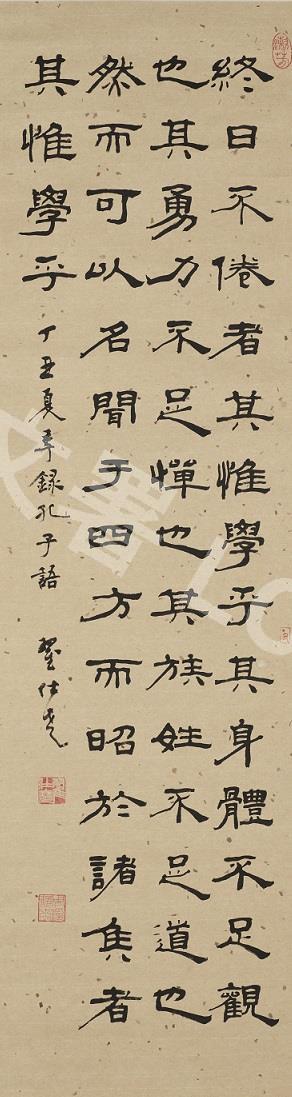 終日不倦者其惟學乎其身體不足觀
也其勇力不足憚也其族姓不足道也
然而可以名聞于四方而昭於諸侯者
其惟學乎 丁丑夏季錄孔子語 翟仕堯